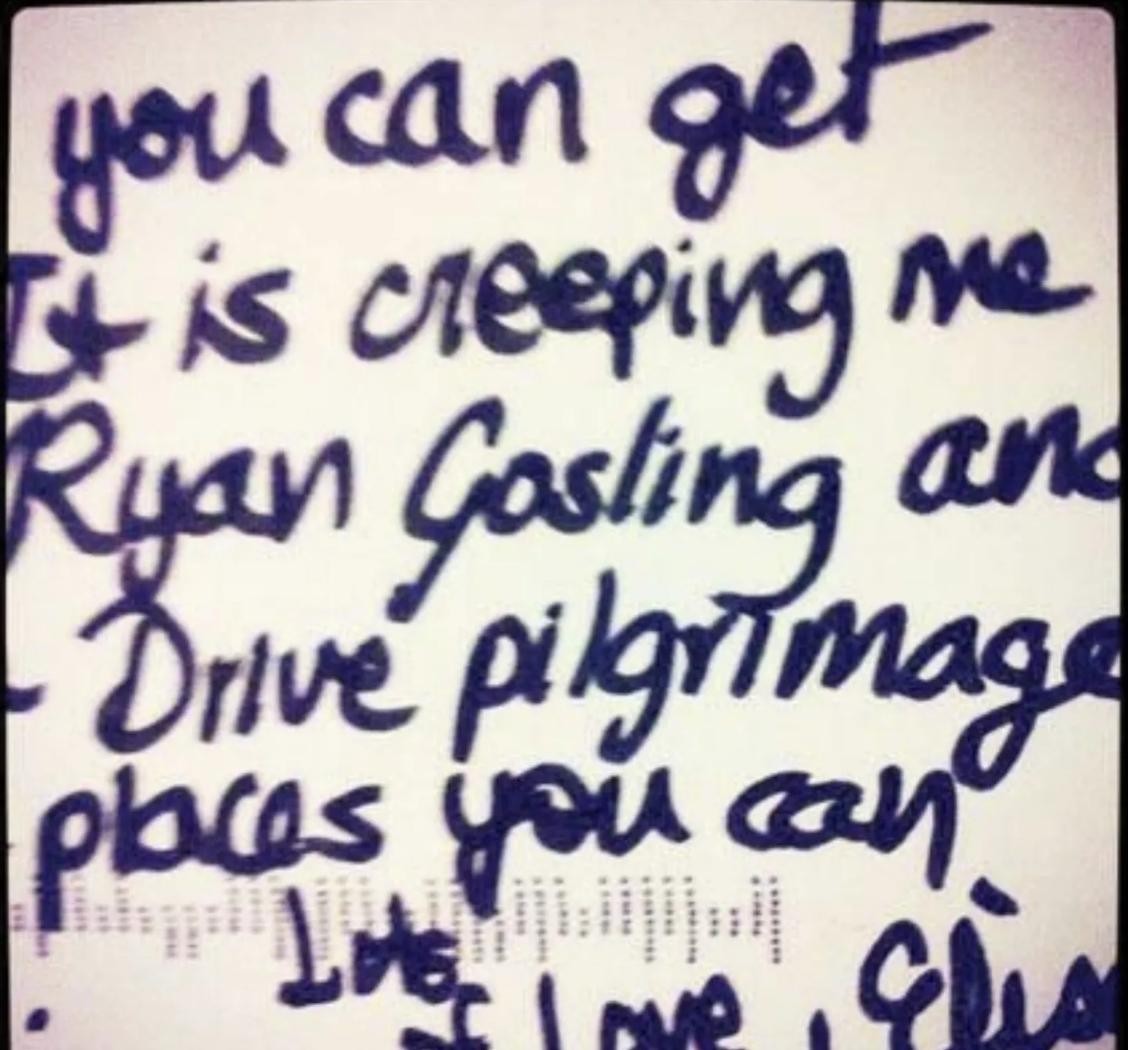 you can get
It is creeping me
Ryan Gosling and
- Drive pilgrimage
places you can
Lots
of love, Elisa